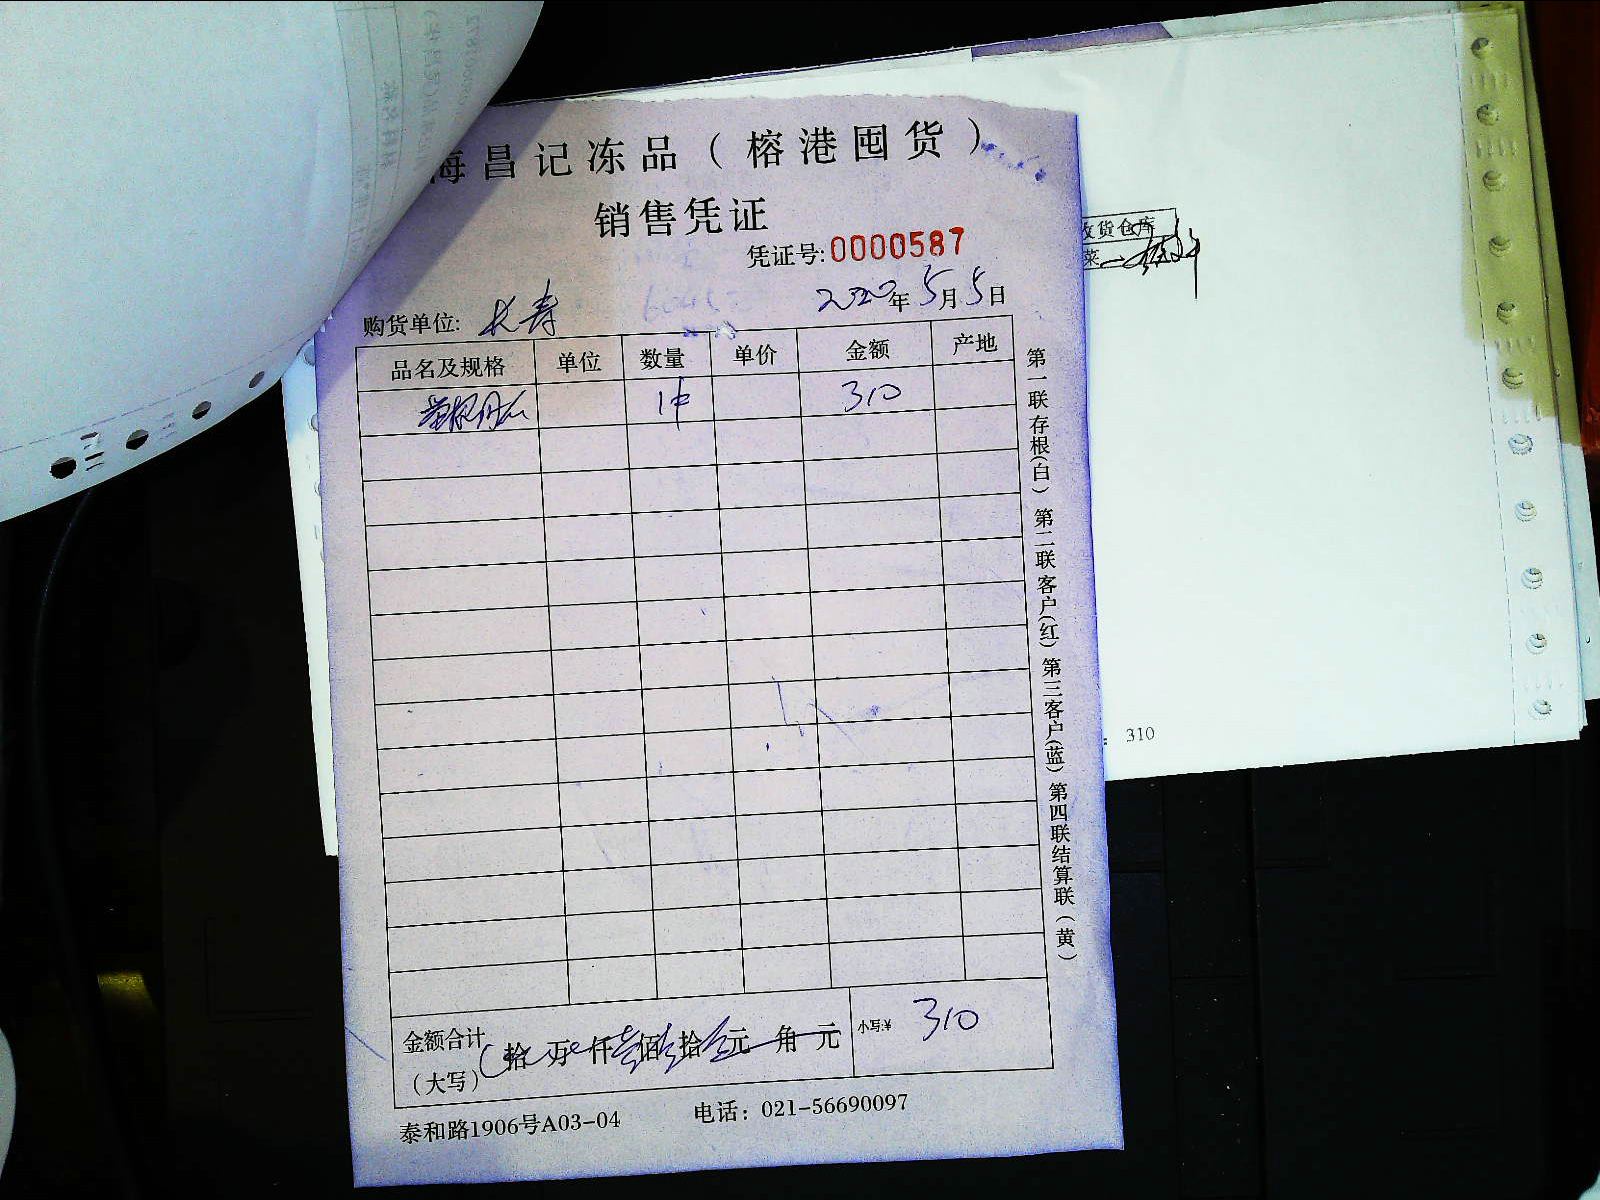 海昌记冻品（榕港囤货）
销售凭证
凭证号:0000587
购货单位: 长寿 2020年5月5日
品名及规格 单位 数量 单价 金额 产地
1件 310
金额合计（大写） 拾 万 仟 叁佰 壹拾 元 角 元 小写:¥ 310
泰和路1906号A03-04 电话：021-56690097
第一联存根(白) 第二联客户(红) 第三客户(蓝) 第四联结算联（黄）
收货仓库
菜
: 310